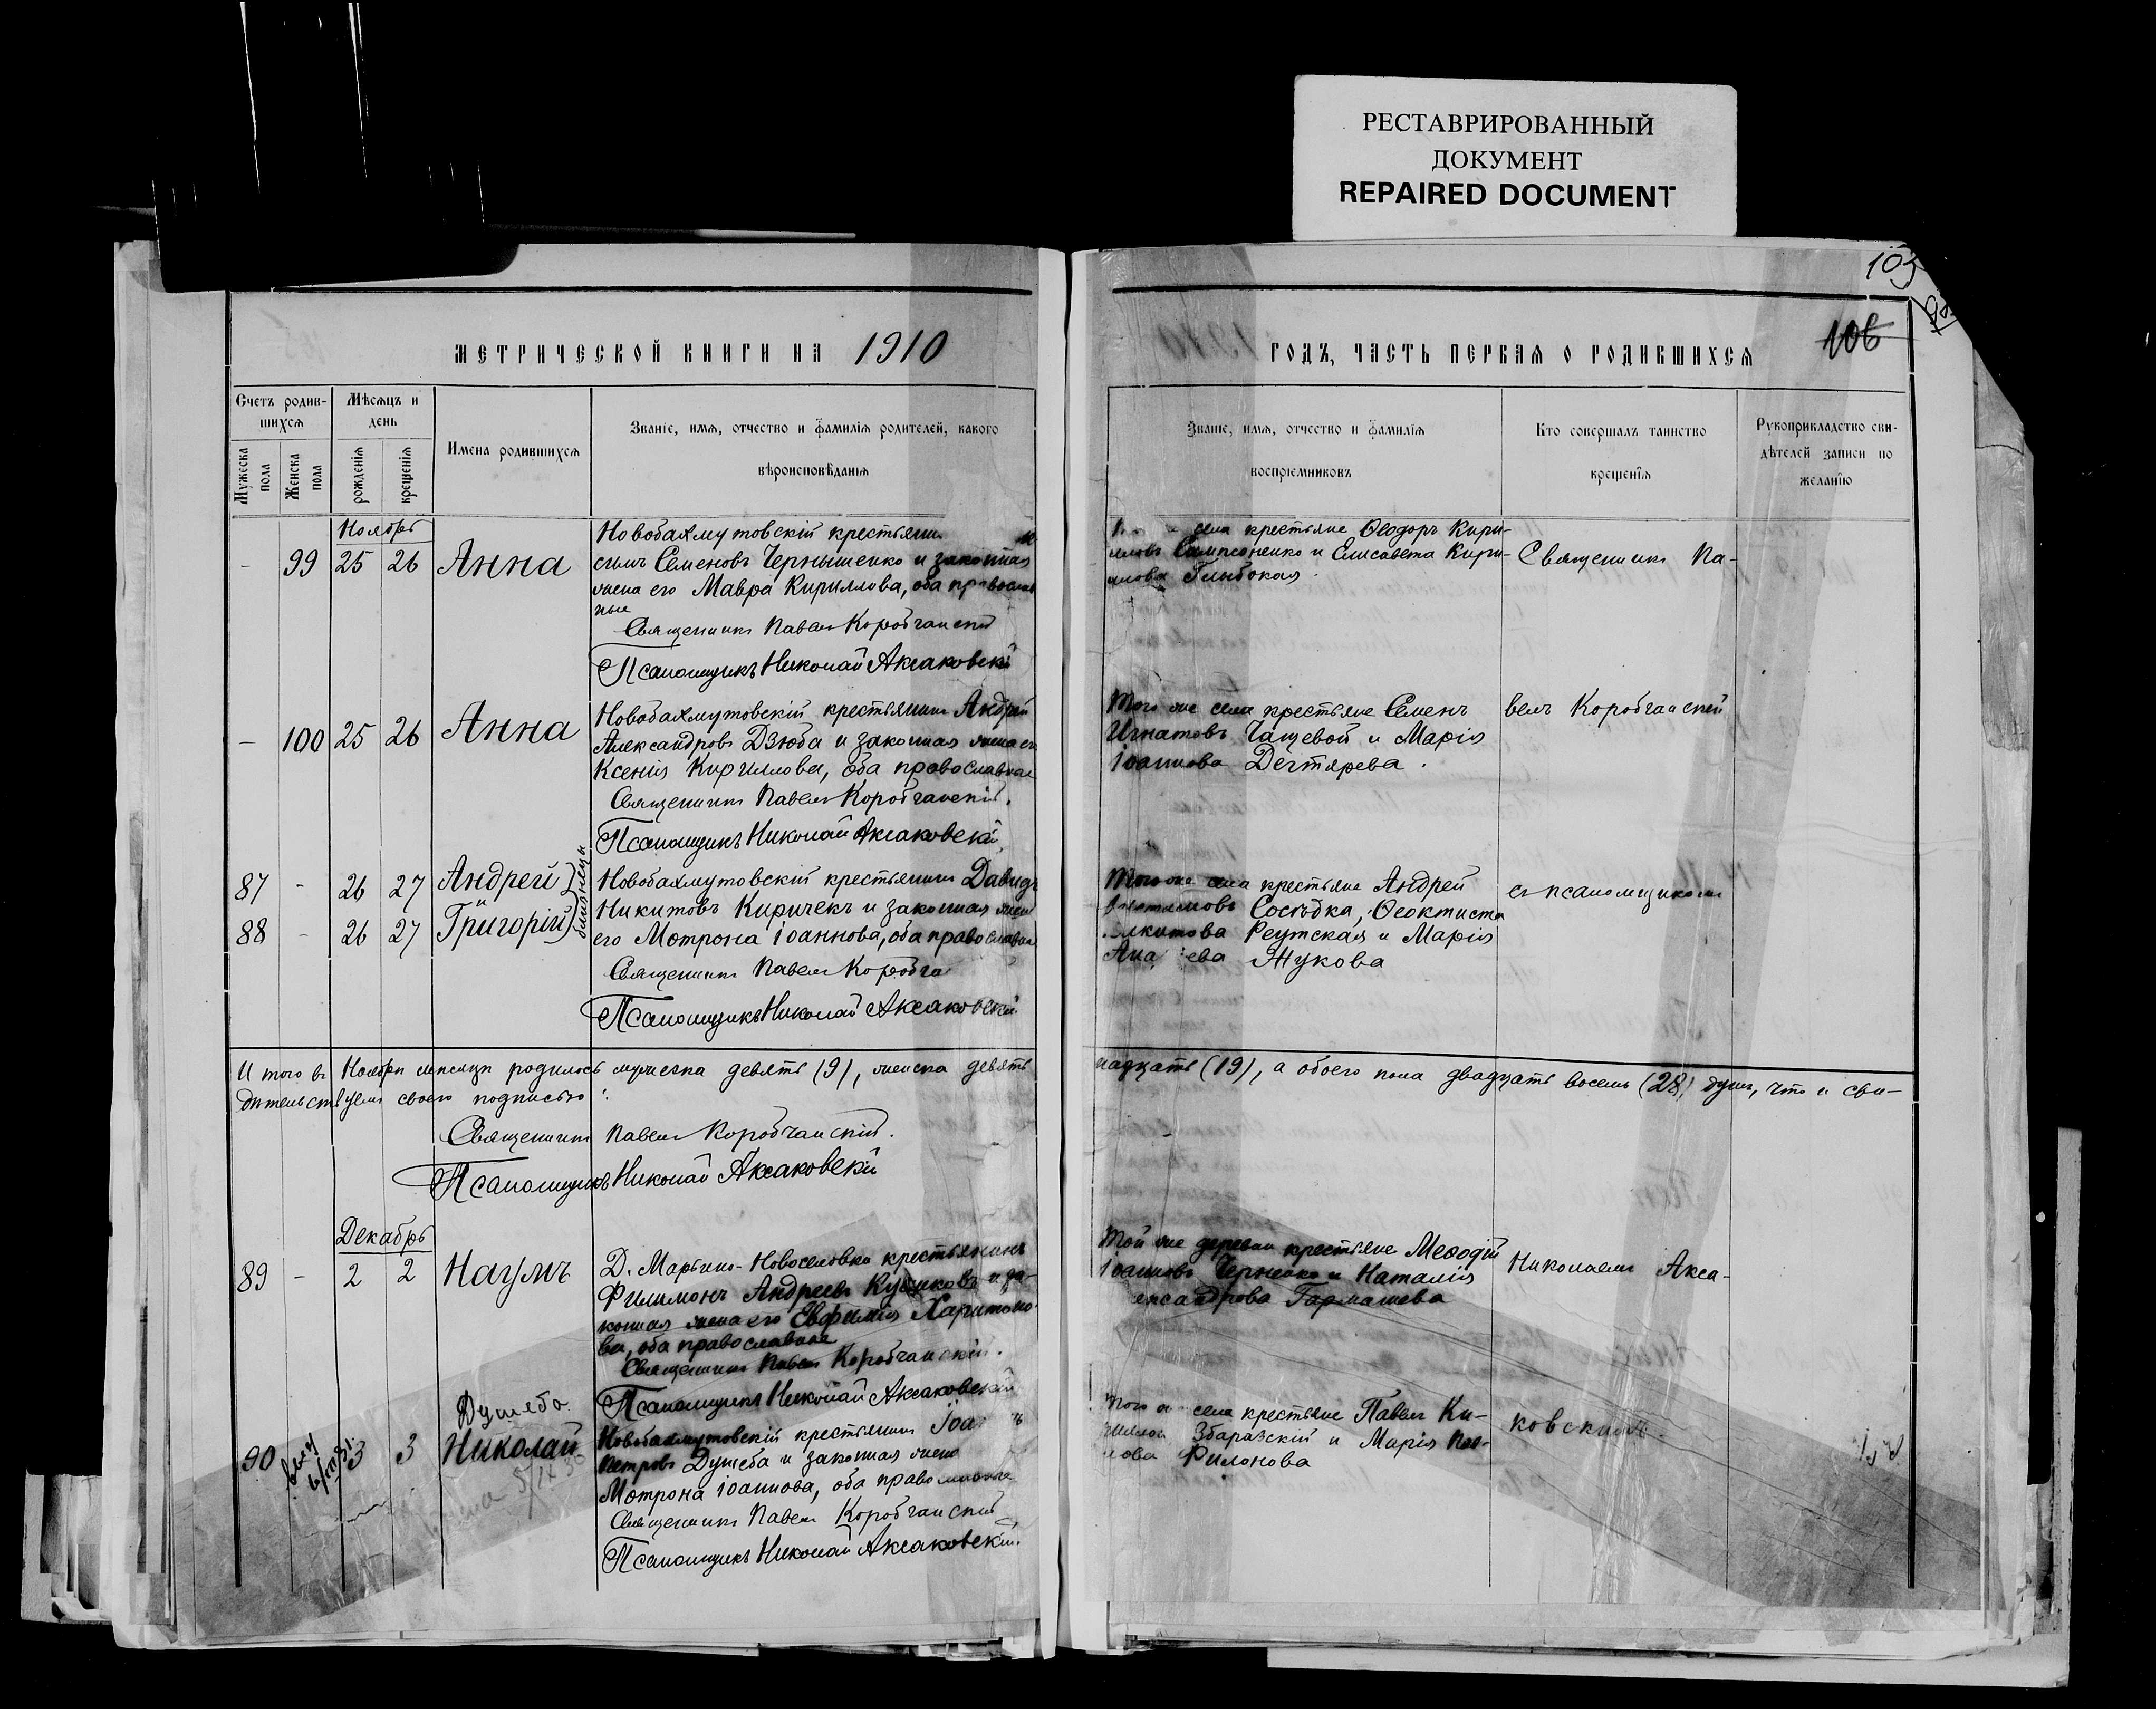 РЕСТАВРИРОВАННЫЙ
ДОКУМЕНТ
REPAIRED DOCUMENT
МЕТРИЧЕСКОЙ КНИГИ НА 1910
Счетъ родив-
шихся
Мѣсяцъ и
день
Мужеска
пола
Женска
пола
рожденія
крещенія
Имена родившихся
Званіе, имя, отчество и фамилія родителей, какого
вѣроисповѣданія
Ноябрь
- 99 25 26 Анна
Новобахмутовскій крестьянин
Семеновъ Чернышенко и законная
жена его Мавра Кириллова, оба православ
ные
Священникъ Павелъ Коробчанскій
Псаломщикъ Николай Аксаковскій
- 100 25 26 Анна
Новобахмутовскій крестьянинъ Андрей
Александровъ Дзюба и законная жена его
Ксенія Кириллова, оба православные
Священникъ Павелъ Коробчанскій.
Псаломщикъ Николай Аксаковскій
87 - 26 27 Андрей
88 - 26 27 Григорій
близнецы
Новобахмутовскій крестьянинъ Давидъ
Никитовъ Киричекъ и законная жена
его Мотрона Іоаннова, оба православные
Священникъ Павелъ Коробча
Псаломщикъ Николай Аксаковскій
Итого въ Ноябрѣ мѣсяцѣ родилось мужеска девять (9), женска девять
дѣтельствуемъ своею подписью:
Священникъ Павелъ Коробчанскій.
Псаломщикъ Николай Аксаковскій
Декабрь
89 - 2 2 Наумъ
Д. Марьино-Новоселовка крестьянинъ
Филимонъ Андреевъ и за-
конная жена его Евфимія Харитоно-
ва, оба православные
Священникъ Павелъ Коробчанскій.
Псаломщикъ Николай Аксаковскій
Душеба
90 3 3 Николай
Новобахмутовскій крестьянинъ Іоа ъ
Петровъ Душеба и законная жена
Мотрона Іоаннова, оба православные
Священникъ Павелъ Коробчанскій
Псаломщикъ Николай Аксаковскій.
103
106
1910 ГОДЪ, ЧАСТЬ ПЕРВАЯ О РОДИВШИХСЯ
Званіе, имя, отчество и фамилія
воспріемниковъ
Кто совершалъ таинство
крещенія
Рукоприкладство сви-
дѣтелей записи по
желанію
села крестьяне Ѳеодоръ Кири-
лловъ Самисоненко и Елисавета Кири-
ллова Глыбокая.
Священникъ Па-
Того же села крестьяне Семенъ
Игнатовъ Чащевой и Марія
Іоаннова Дегтярева.
велъ Коробчанскій
Того же села крестьяне Андрей
Сосѣдка, Ѳеоктиста
Реутская и Марія
Жукова
съ псаломщикомъ
надцать (19), а обоего пола двадцать восемь (28) душъ, что и сви-
Той же деревни крестьяне Меѳодій
Іоанновъ Черненко и Наталія
ександрова Гармашева
Николаемъ Акса-
села крестьяне Павелъ Ки-
Збаразскій и Марія
Филонова
ковскимъ.